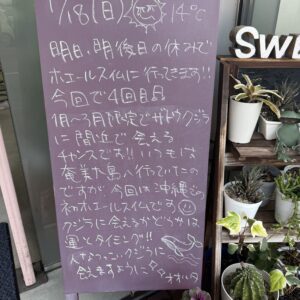 1/18(日) 14℃
明日、明後日の休みで
ホエールスイムに行ってきます!!
今回で4回目
1月〜3月限定でザトウクジラ
に間近で会える
チャンスです!! いつもは
奄美大島へ行っていたの
ですが、今回は沖縄での
初ホエールスイムです
クジラに会えるかどうかは
運とタイミング!!
人なつっこいクジラに
会えますように
SWE